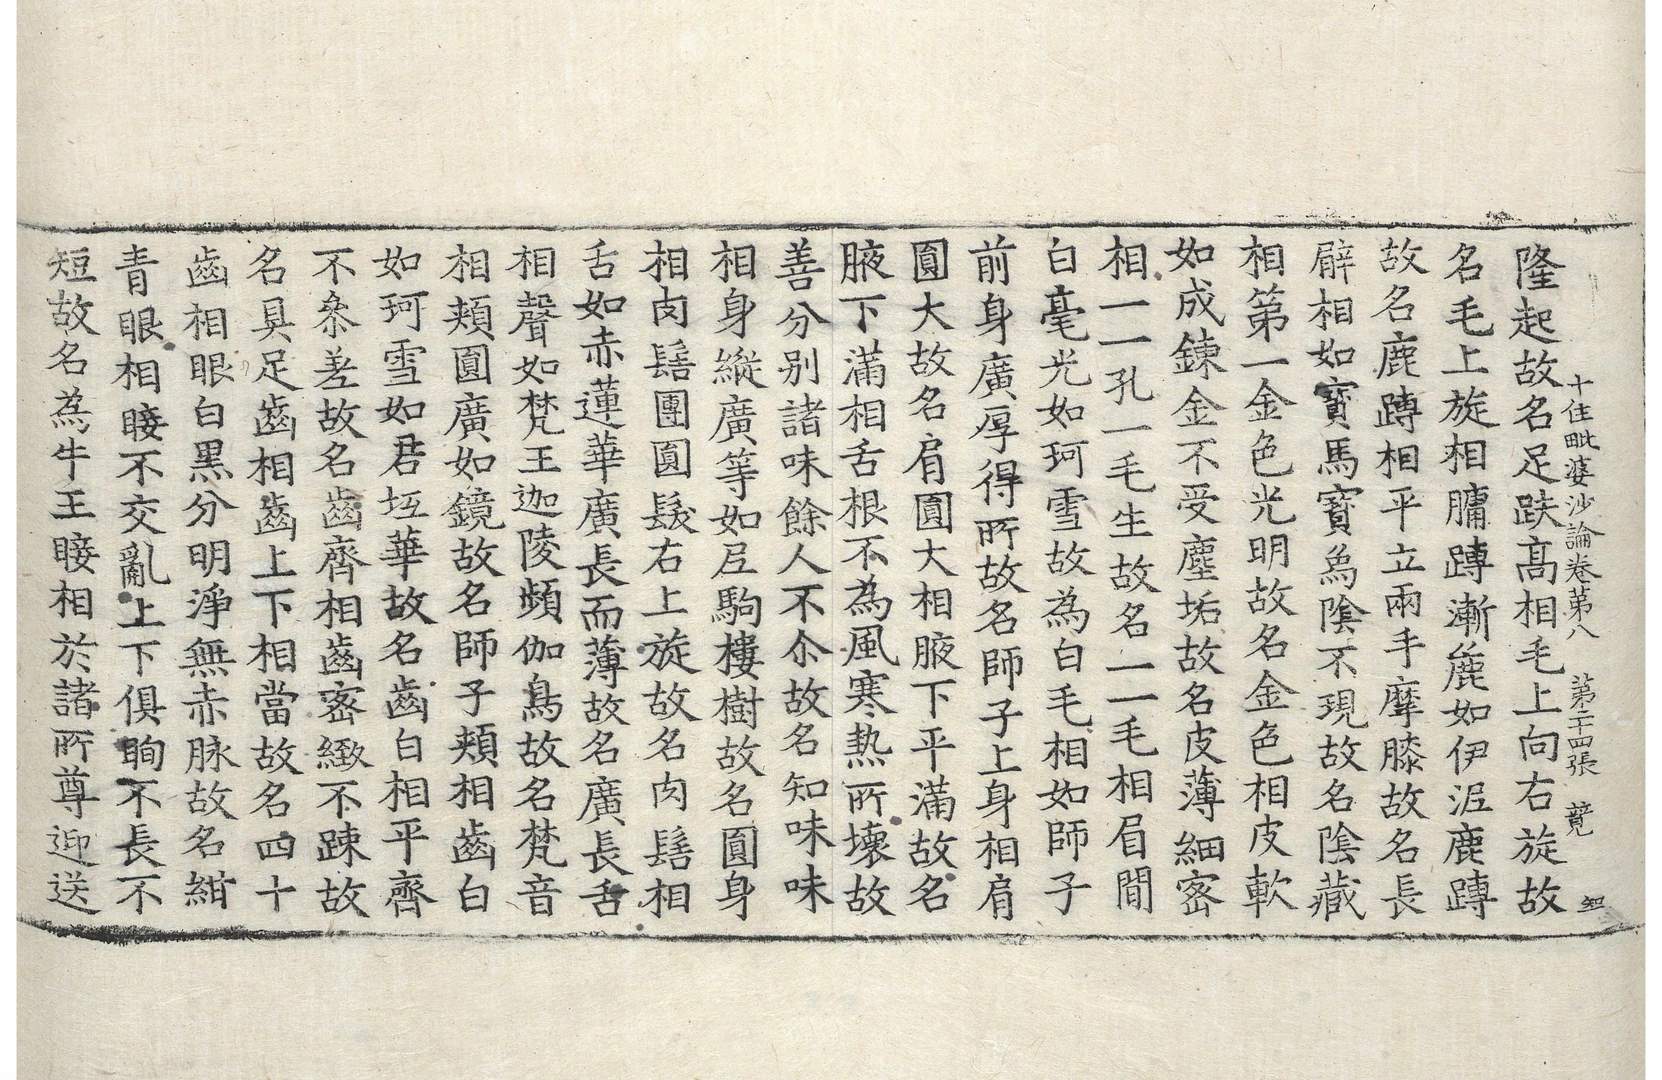 十住毗婆沙論卷第八　第二十四張　藂　知
隆起故名足趺髙相毛上向右旋故
名毛上旋相𦟛䏝漸麁如伊泥鹿䏝
故名鹿䏝相平立兩手摩膝故名長
臂相如寳馬寳烏隂不現故名隂藏
相第一金色光明故名金色相皮軟
如成鍊金不受塵垢故名皮薄細宻
相一一孔一毛生故名一一毛相眉間
白毫光如珂雪故為白毛相如師子
前身廣厚得所故名師子上身相肩
圓大故名肩圓大相腋下平滿故名
腋下滿相舌根不為風寒熱所壞故
善分别諸味餘人不尒故名知味味
相身縱廣等如尼駒樓樹故名圓身
相肉髻團圓髮右上旋故名肉髻相
舌如赤蓮華廣長而薄故名廣長舌
相聲如梵王迦陵頻伽鳥故名梵音
相頰圓廣如鏡故名師子頰相齒白
如珂雪如君坻華故名齒白相平齊
不叅差故名齒齊相齒宻緻不踈故
名具足齒相齒上下相當故名四十
齒相眼白黑分明淨無赤脉故名紺
青眼相睫不交亂上下俱眴不長不
短故名為牛王睫相於諸所尊迎送